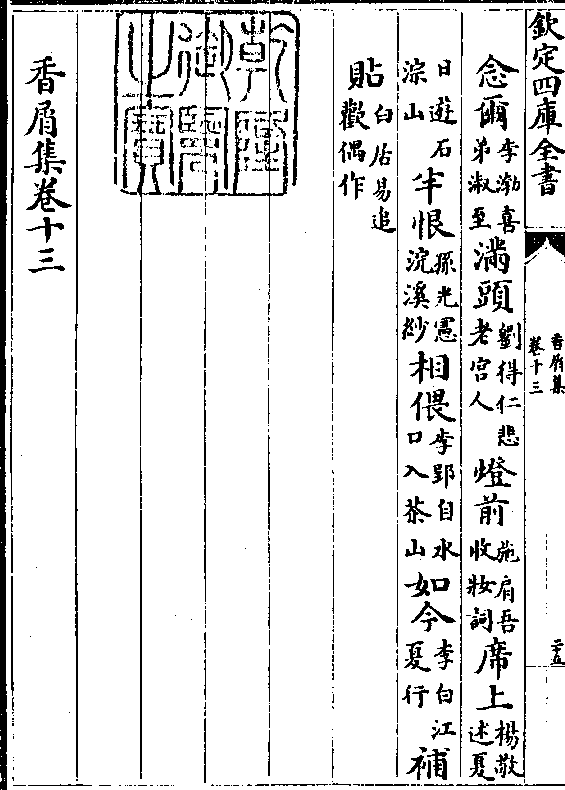 欽定四庫全書
香屑集
卷十三
二十五
念爾李渤喜弟淑至滿頭劉得仁悲老宮人燈前施肩吾收妝詞席上楊敬述夏
日遊石淙山半恨孫光憲浣溪紗相偎李郢自水口入茶山如今李白江夏行補
貼白居易追歡偶作
乾隆御覽之寶
香屑集卷十三